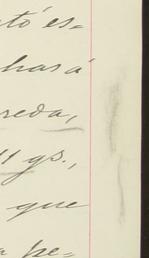 tó es=
has á
reda,
11 gs.,
que
a pe=